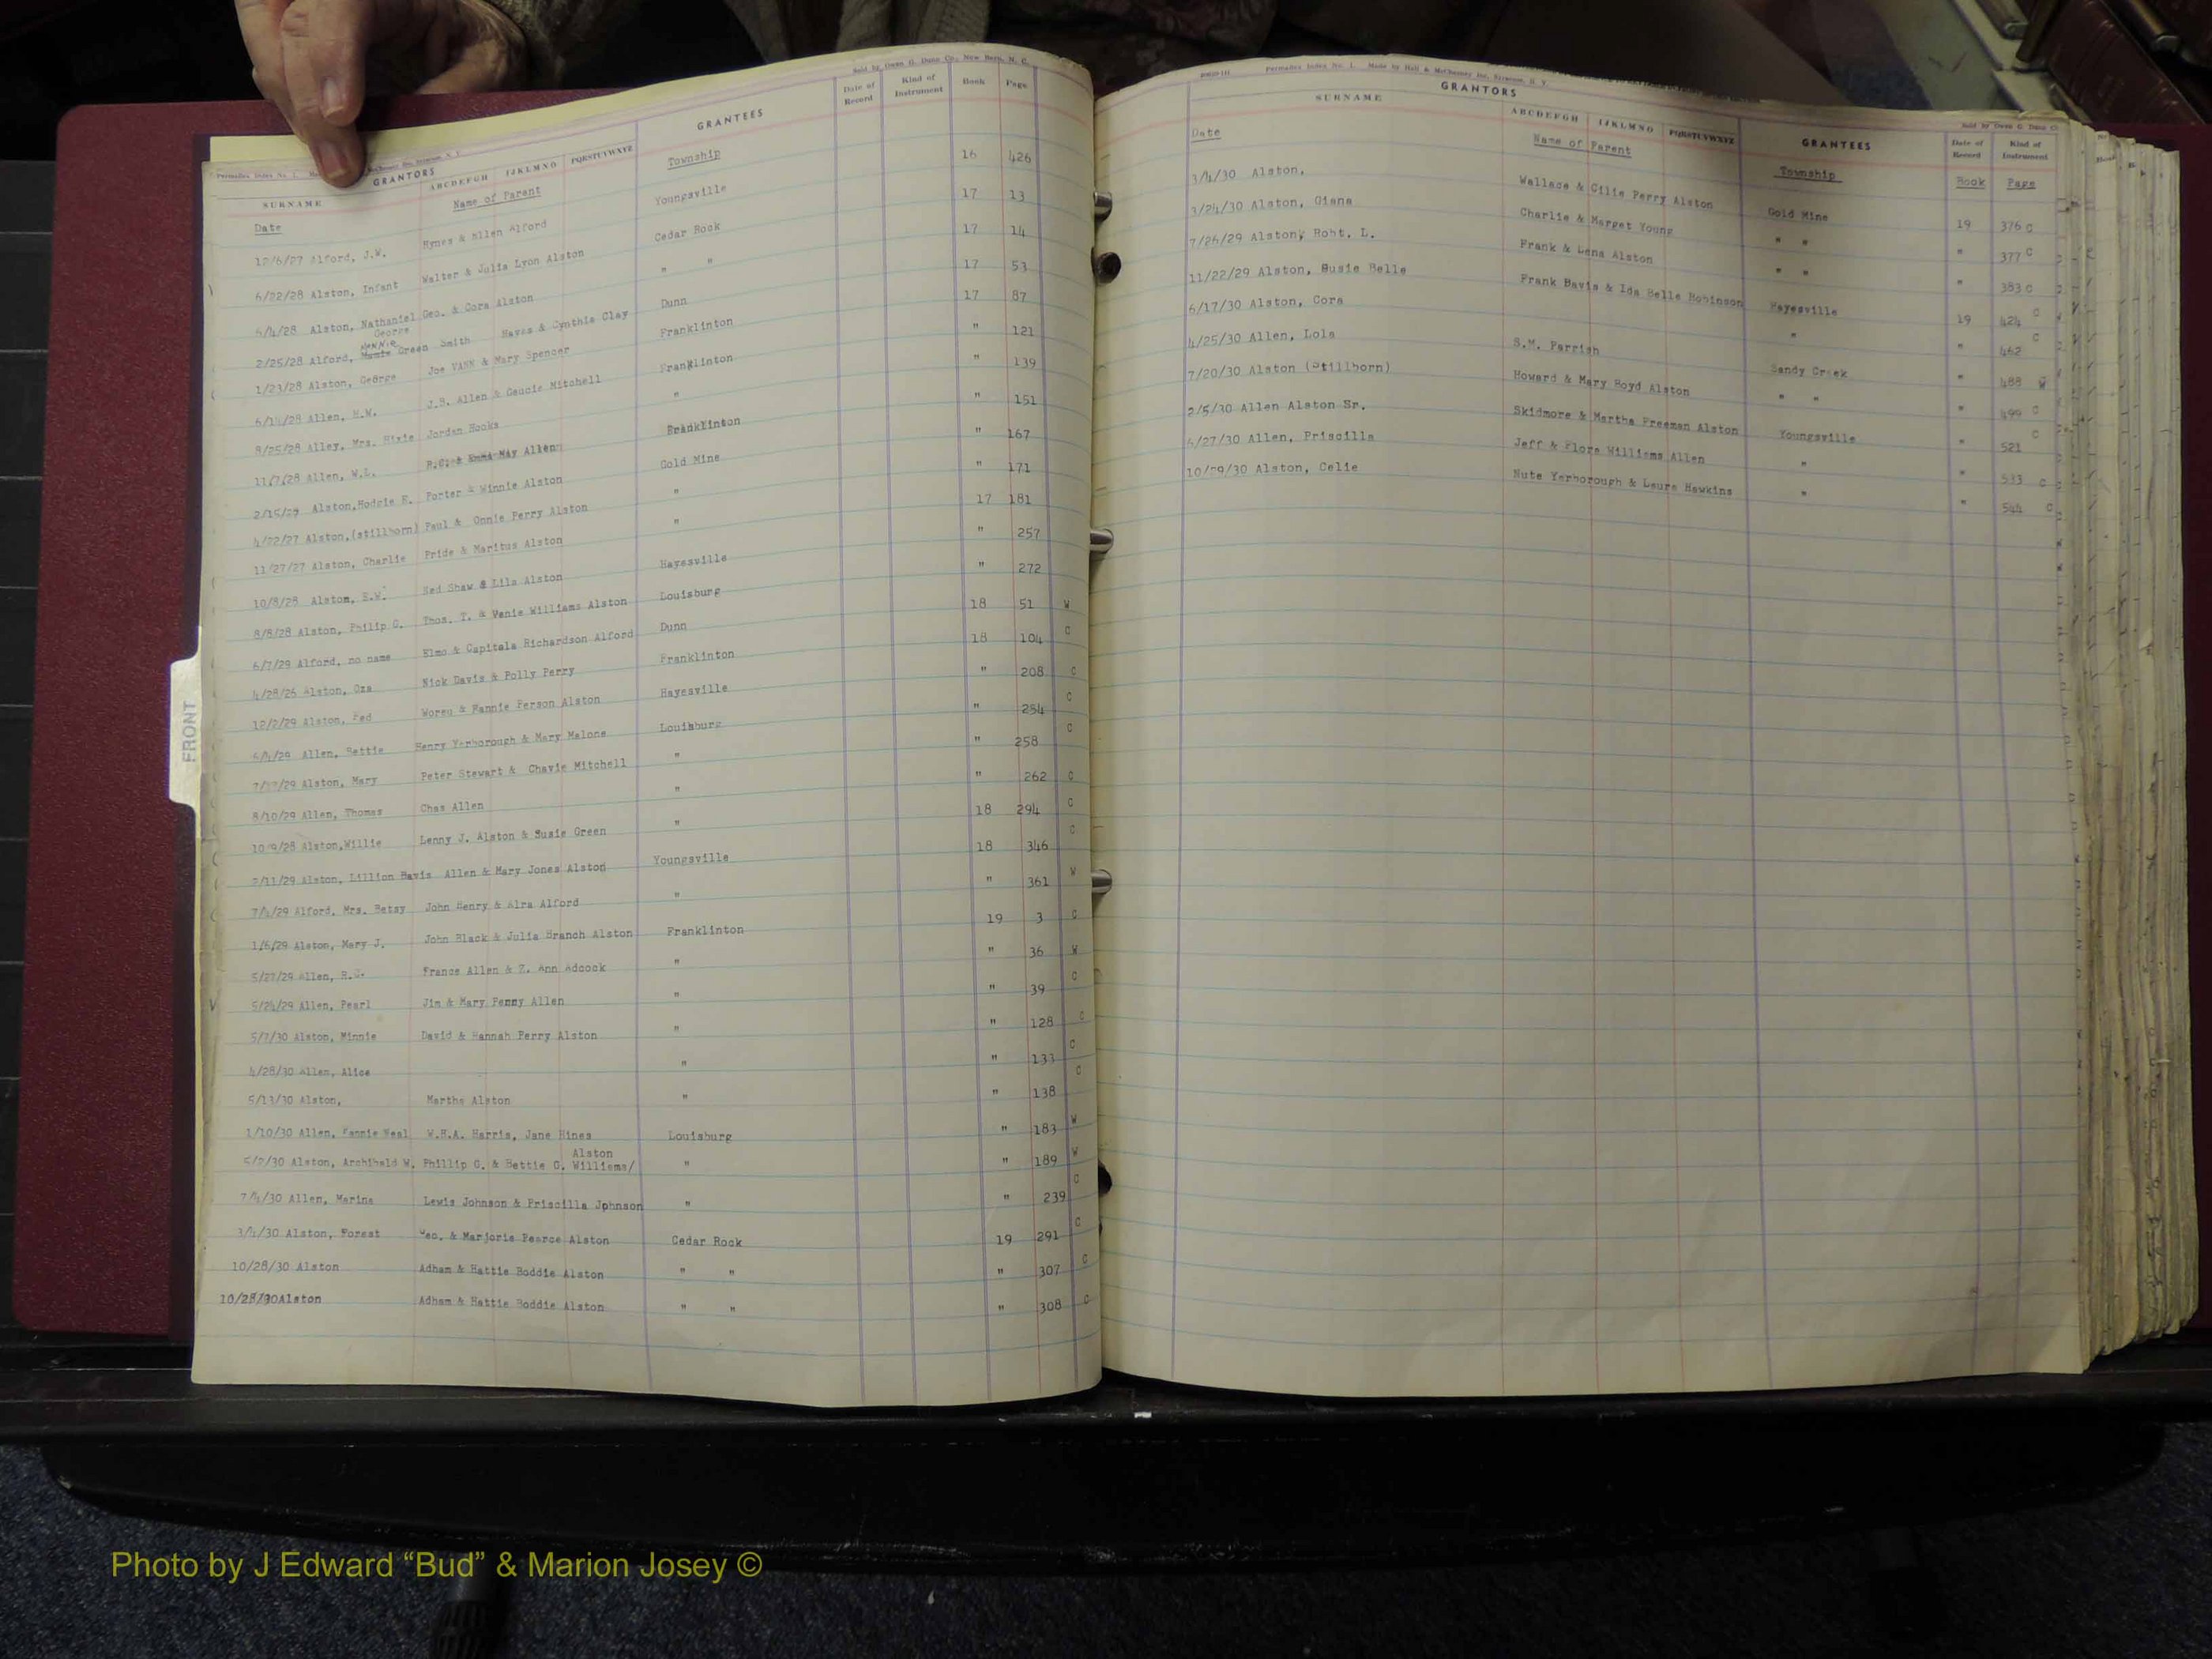 Sold by Owen G. Dunn Co., New Bern, N. C.
GRANTORS
SURNAME ABCDEFGH IJKLMNO PQRSTUVWXYZ GRANTEES Date of Record Kind of Instrument Book Page
Date Name of Parent Township
12/6/27 Alford, J.W. Hynes & Allen Alford Youngsville 16 426
6/22/28 Alston, Infant Walter & Julia Lyon Alston Cedar Rock 17 13
5/4/28 Alston, Nathaniel Geo. & Cora Alston " " 17 14
George NANNIE
2/25/28 Alford, Green Smith Hayes & Cynthia Clay Dunn 17 53
1/23/28 Alston, George Joe VANN & Mary Spencer Franklinton 17 87
Allen, H.W. J.B. Allen & Gaucie Mitchell Franglinton " 121
8/25/28 Alley, Mrs. Jordan Hooks " " 139
11/7/28 Allen, W.L. R.G. & Emma May Allen Franklinton " 151
2/15/29 Alston, Hodgie E. Porter & Winnie Alston Gold Mine " 167
4/22/27 Alston,(stillborn) Paul & Onnie Perry Alston " " 171
11/27/27 Alston, Charlie Pride & Maritus Alston " 17 181
10/8/28 Alston, E.W. Red Shaw & Lila Alston Hayesville " 257
8/8/28 Alston, Philip G. Thos. T. & Venie Williams Alston Louisburg " 272
6/7/29 Alford, no name Elmo & Capitala Richardson Alford Dunn 18 51 W
4/28/26 Alston, Oza Nick Davis & Polly Perry Franklinton 18 104 C
12/2/29 Alston, Red & Mannie Person Alston Hayesville " 208 C
Allen, Bettie Henry Yarborough & Mary Malone Louisburg " 254 C
Alston, Mary Peter Stewart & Chavie Mitchell " " 258 C
8/10/29 Allen, Thomas Chas Allen " " 262 C
10/9/28 Alston,Willie Lenny J. Alston & Susie Green " 18 294 C
2/11/29 Alston, Lillion Davis Allen & Mary Jones Alston Youngsville 18 346 C
7/4/29 Alford, Mrs. Betsy John Henry & Alra Alford " " 361 W
1/6/29 Alston, Mary J. John Black & Julia Branch Alston Franklinton 19 3 C
5/27/29 Allen, R.G. France Allen & Z. Ann Adcock " " 36 W
5/24/29 Allen, Pearl Jim & Mary Penny Allen " " 39 C
5/7/30 Alston, Minnie David & Hannah Perry Alston " " 128 C
4/28/30 Allen, Alice " " 133 C
5/13/30 Alston, Martha Alston " " 138 C
1/10/30 Allen, Fannie Neal W.H.A. Harris, Jane Hines Louisburg " 183 W
Alston
5/2/30 Alston, Archibald W. Phillip G. & Bettie G. Williams/ " " 189 W
7/4/30 Allen, Marina Lewis Johnson & Priscilla Jphnson " " 239 C
3/4/30 Alston, Forest Geo. & Marjorie Pearce Alston Cedar Rock 19 291 C
10/28/30 Alston Adham & Hattie Boddie Alston " " " 307 C
10/28/30Alston Adham & Hattie Boddie Alston " " " 308 C
FRONT
Permadex Index No. 1. Made by Hall & McChesney Inc. Syracuse, N. Y.
GRANTORS
Sold by Owen G. Dunn Co
SURNAME ABCDEFGH IJKLMNO PQRSTUVWXYZ GRANTEES Date of Record Kind of Instrument
Date Name of Parent Township Book Page
3/4/30 Alston, Wallace & Cilie Perry Alston Gold Mine 19 376 C
3/24/30 Alston, Oiana Charlie & Marget Young " " " 377 C
7/26/29 Alston, Robt. L. Frank & Lena Alston " " " 383 C
11/22/29 Alston, Susie Belle Frank Davis & Ida Belle Robinson Hayesville 19 424 C
6/17/30 Alston, Cora " " 462 C
4/25/30 Allen, Lola S.M. Parrish Sandy Creek " 488 W
7/20/30 Alston (Stillborn) Howard & Mary Boyd Alston " " " 499 C
2/5/30 Allen Alston Sr. Skidmore & Martha Freeman Alston Youngsville " 521 C
6/27/30 Allen, Priscilla Jeff & Flora Williams Allen " " 533 C
10/29/30 Alston, Celie Nute Yarborough & Laura Hawkins " " 544 C
Photo by J Edward “Bud” & Marion Josey ©